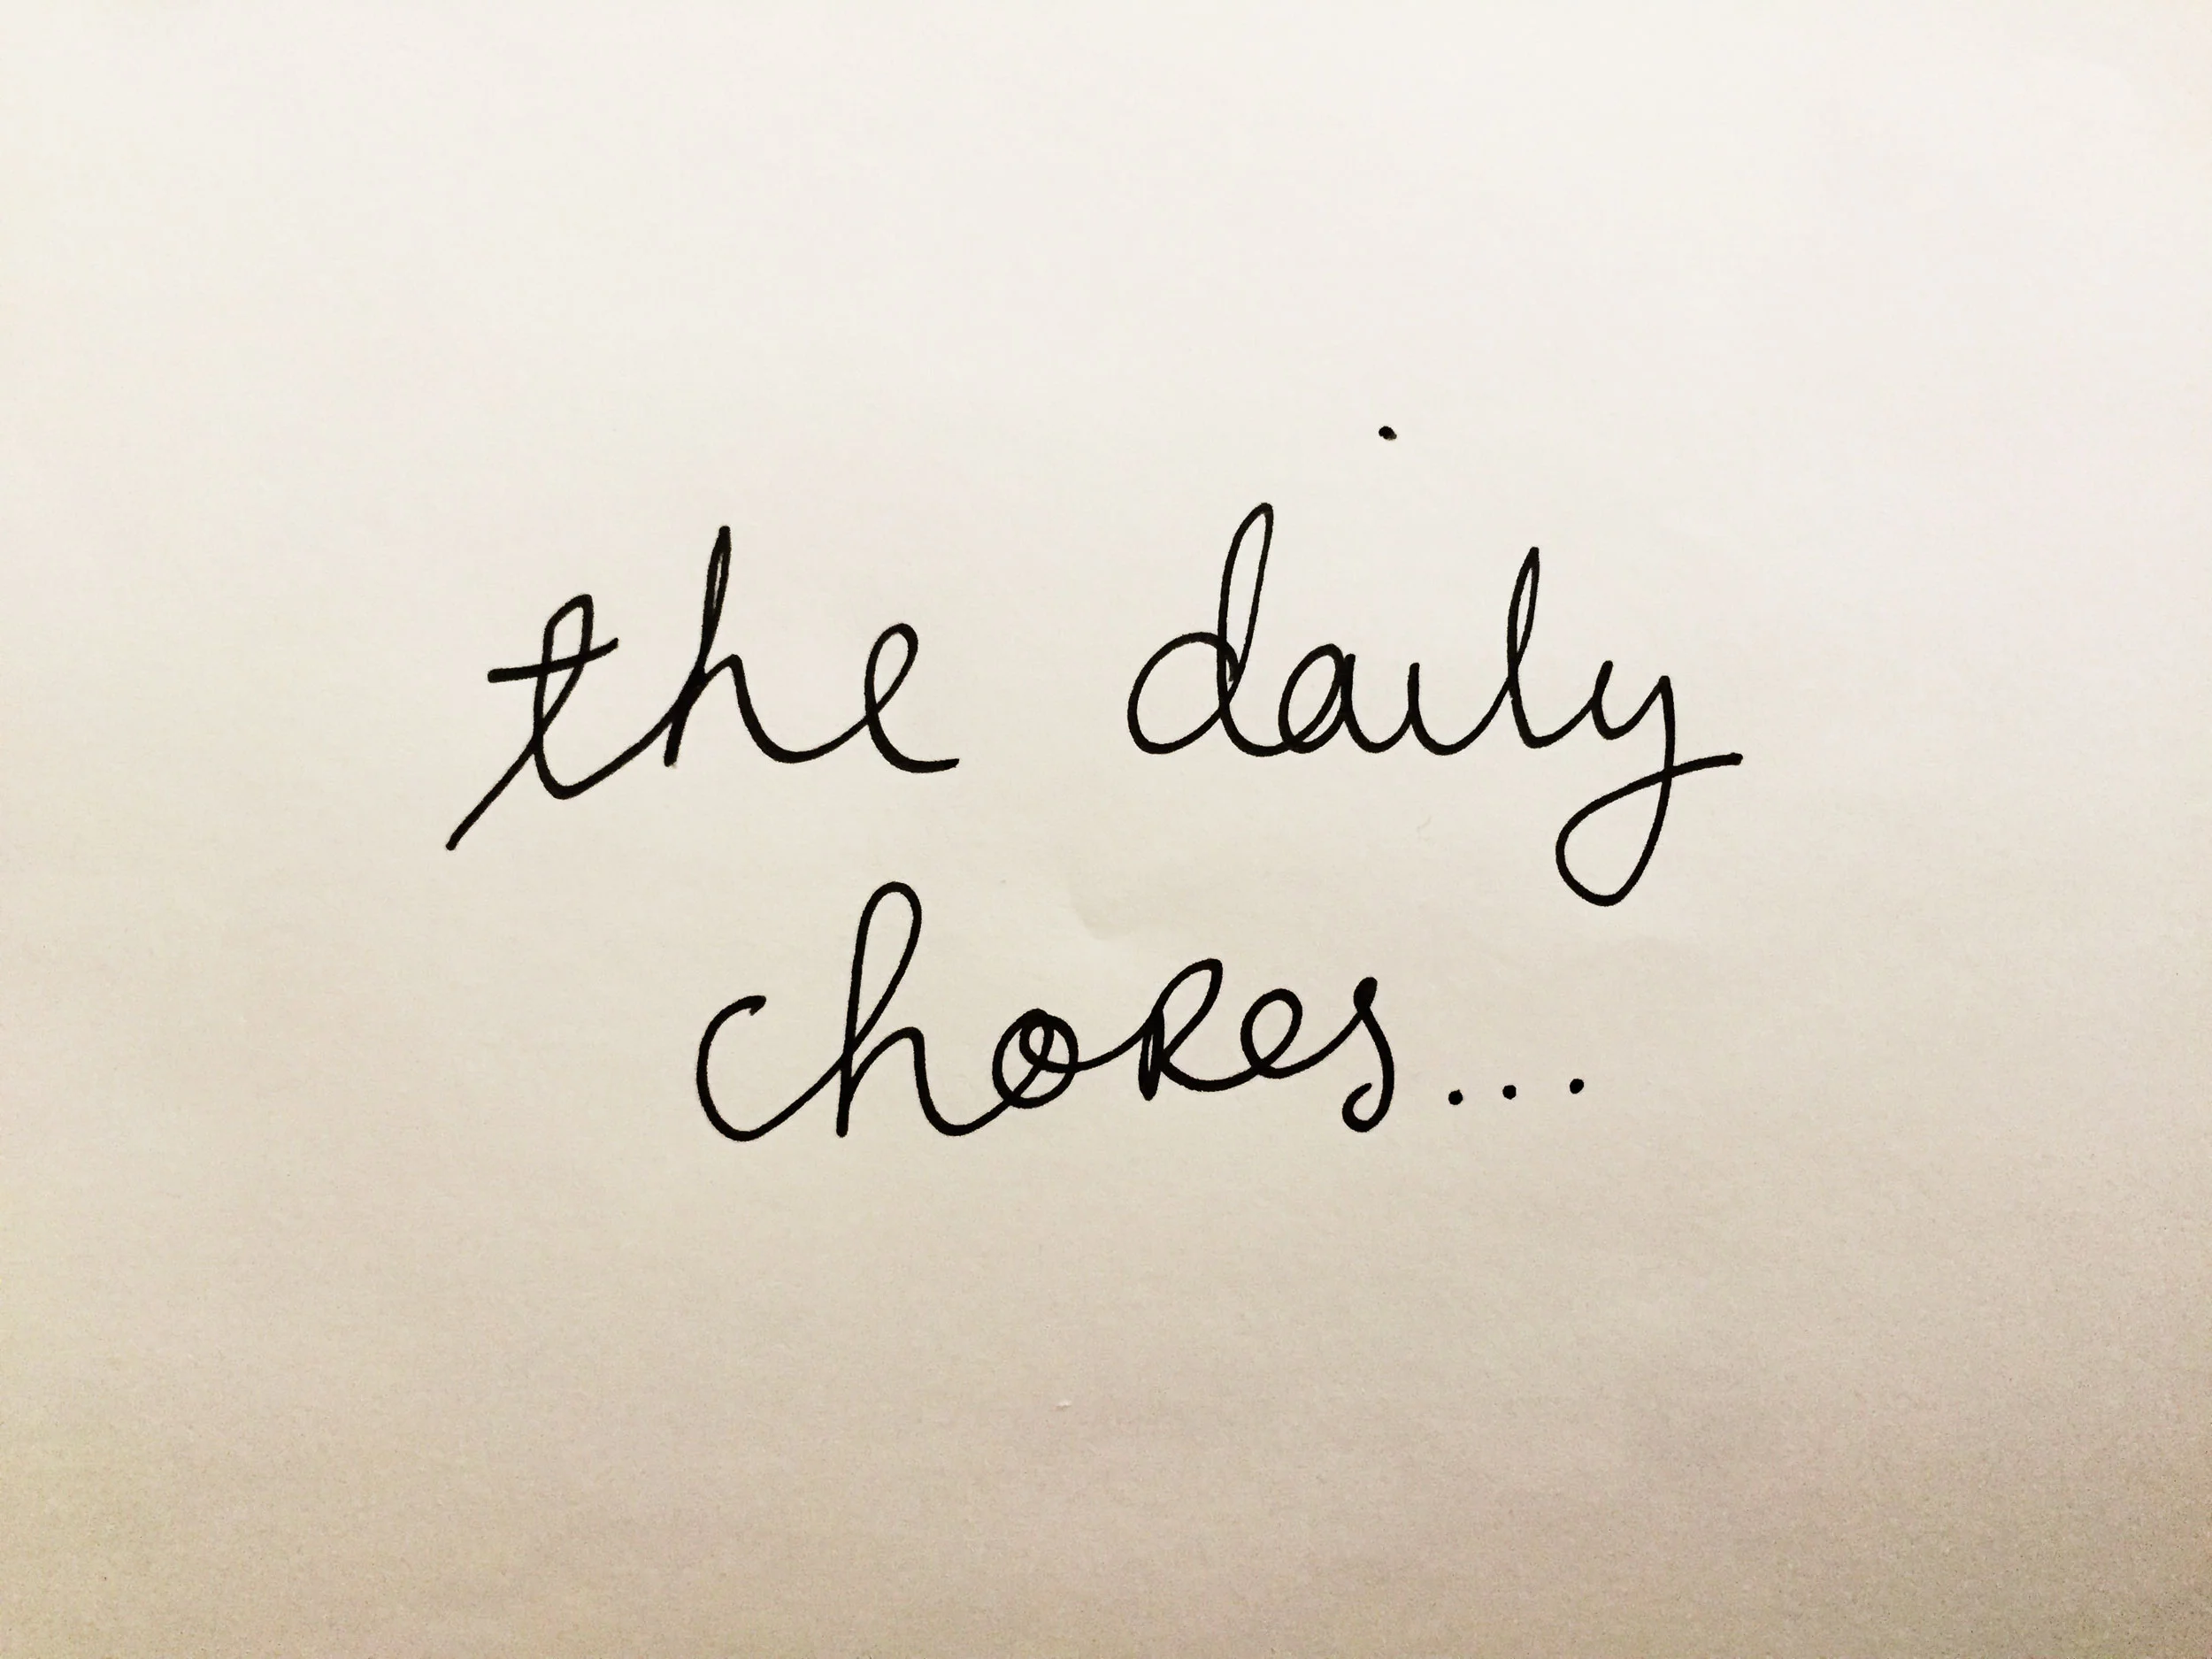 the daily
chores...